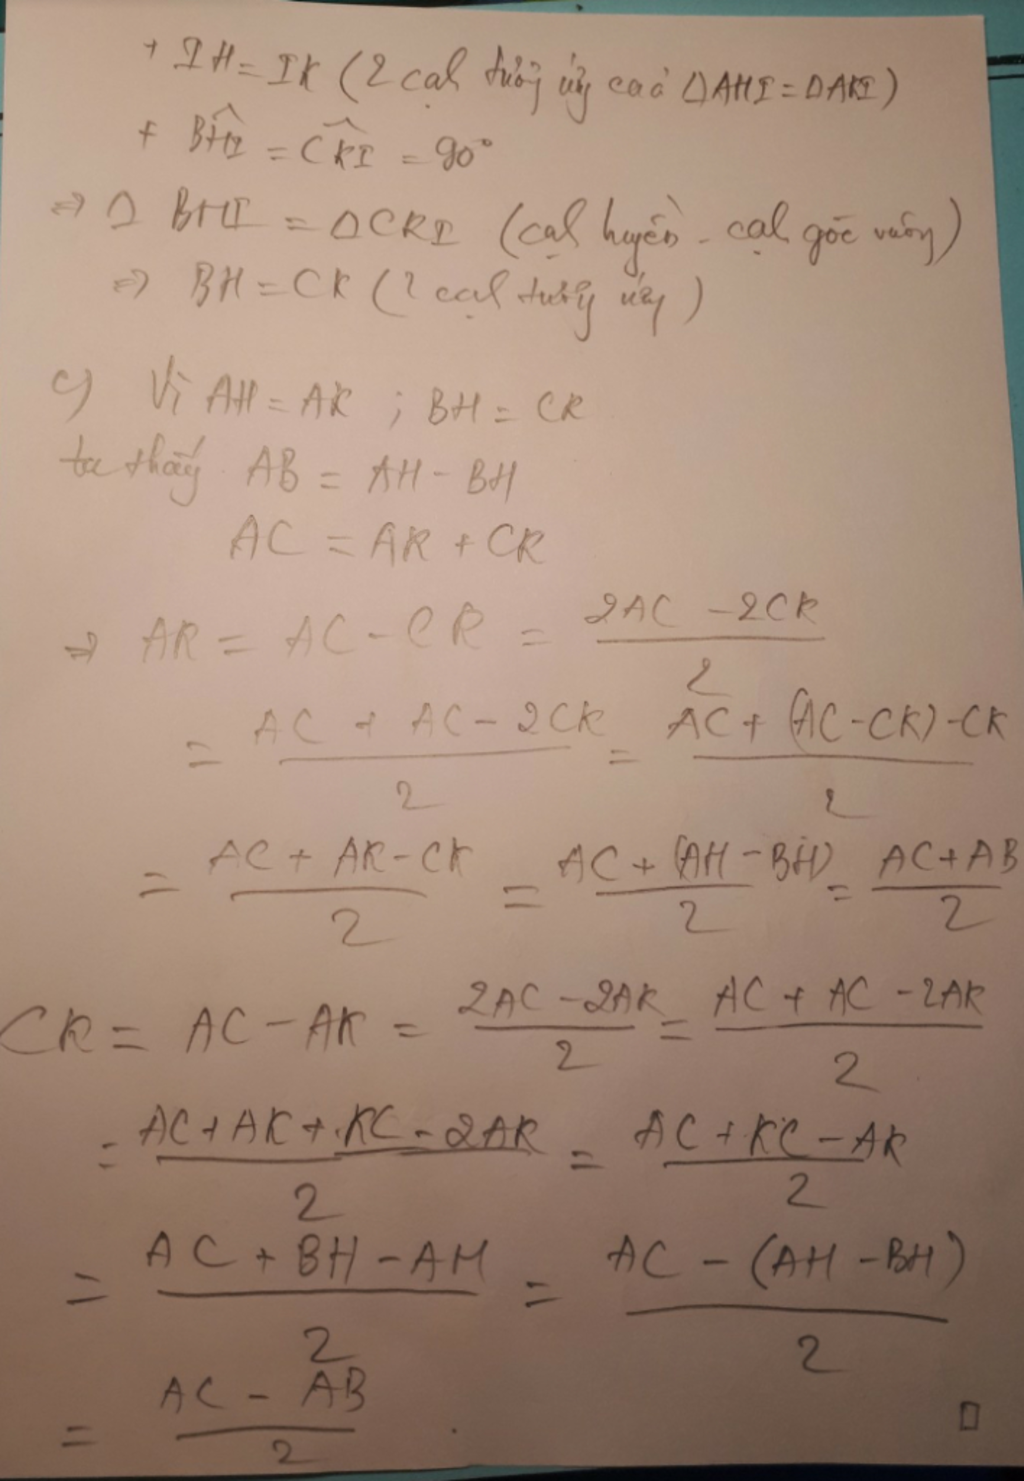 + IH = IK (2 cạh tưởg ứg củả ΔAHI = ΔAKI)
+ \widehat{BHI} = \widehat{CKI} = 90°
⇒ Δ BHI = ΔCKI (cạh huyền - cạh góc vuôg)
⇒ BH = CK (2 cạh tưởg ứg)
c) Vì AH = AK ; BH = CK
ta thấy AB = AH - BH
AC = AK + CK
⇒ AK = AC - CK = \frac{2AC - 2CK}{2}
= \frac{AC + AC - 2CK}{2} = \frac{AC + (AC - CK) - CK}{2}
= \frac{AC + AK - CK}{2} = \frac{AC + (AH - BH)}{2} = \frac{AC + AB}{2}
CK = AC - AK = \frac{2AC - 2AK}{2} = \frac{AC + AC - 2AK}{2}
= \frac{AC + AK + KC - 2AK}{2} = \frac{AC + KC - AK}{2}
= \frac{AC + BH - AH}{2} = \frac{AC - (AH - BH)}{2}
= \frac{AC - AB}{2} . □